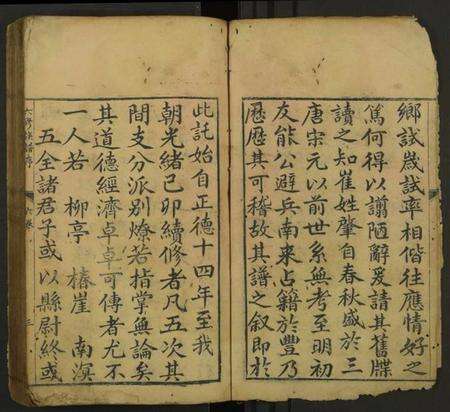 鄉試幾試率相偕往應情好之
篤何得以譾陋辭爰請其舊牒
讀之知崔姓肇自春秋盛於三
唐宋元以前世系無考至明初
友能公避兵南來占籍於豐乃
歷歷其可稽故其譜之叙即於
此託始自正德十四年至我
朝光緒己卯續修者凡五次其
間支分派別燎若指掌無論矣
其道德經濟卓卓可傳者尤不
一人若 柳亭 椿崖 南溟
五全諸君子或以縣尉終或